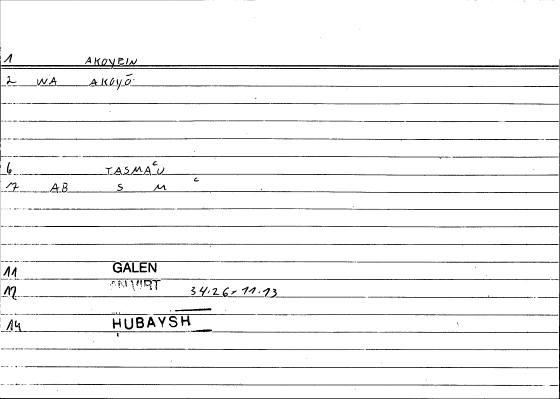 1 AKOYEIN
2 WA AKOYŌ
6 TASMAᶜU
7 AB S M ᶜ
11 GALEN
12 AN VIRT 34.26-11.13
14 HUBAYSH